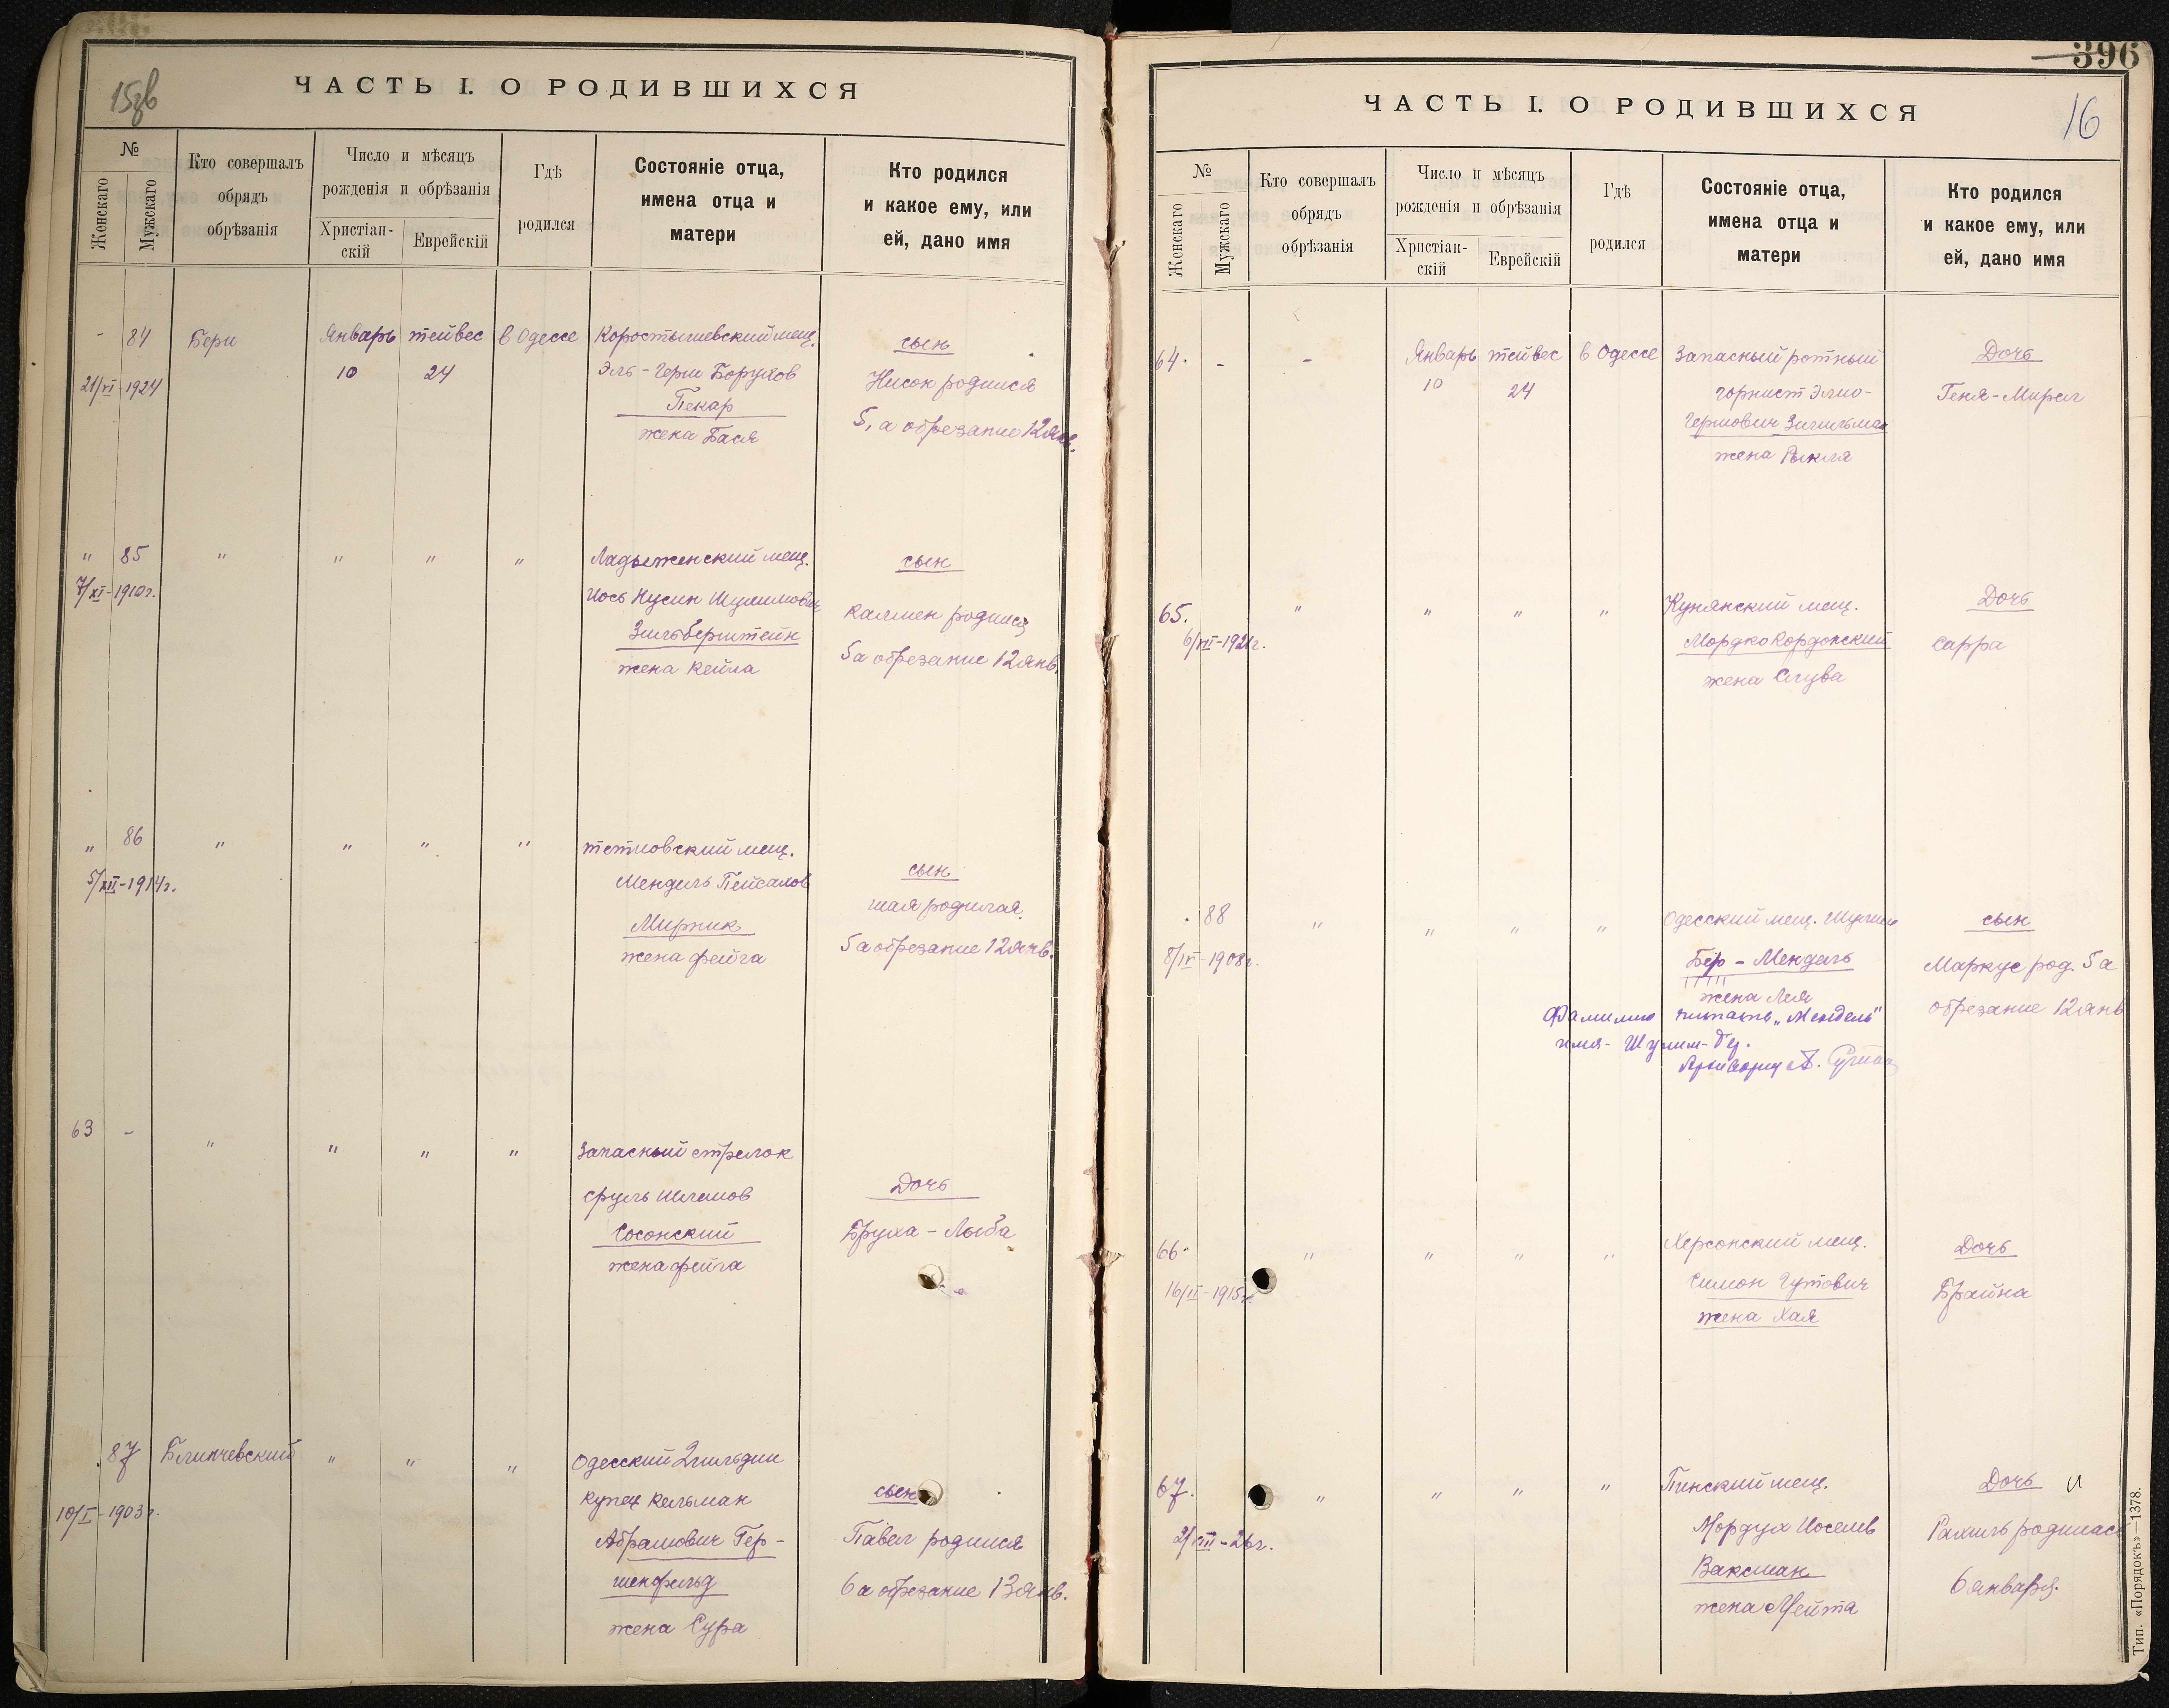 15об
ЧАСТЬ I. О РОДИВШИХСЯ
№
Женскаго
Мужскаго
Кто совершалъ
обрядъ
обрѣзанія
Число и мѣсяцъ
рожденія и обрѣзанія
Христіан-
скій
Еврейскій
Гдѣ
родился
Состояніе отца,
имена отца и
матери
Кто родился
и какое ему, или
ей, дано имя
- 84 Бери Январь тейвес в Одессе Коростышевский мещ. сын
21/VI-1924 10 24 Эль-Герш Борухов Нисон родился
Пекар 5, а обрезание 12 янв.
жена Бася
" 85 " " " " Ладыженский мещ. сын
7/XI-1910г. Иось Нусин Шулимович Калмен родился
Зильберштейн 5 а обрезание 12 янв.
жена Кейла
" 86 " " " " тетиовский мещ. сын
5/XII-1914г. Мендель Пейсахов
Мирник 5 а обрезание 12 янв.
жена фейга
63 - " " " " Запасный стрелок
Сруль Шлемов Дочь
Сосонский Бруха-Лыба
жена фейга
87 Блинчевский " " " Одесский 2 гильдии
10/I-1903г. купец Кельман сын
Абрамович Гер- Павел родился
шенфельд 6 а обрезание 13 янв.
жена Сура
396
16
ЧАСТЬ I. О РОДИВШИХСЯ
№
Женскаго
Мужскаго
Кто совершалъ
обрядъ
обрѣзанія
Число и мѣсяцъ
рожденія и обрѣзанія
Христіан-
скій
Еврейскій
Гдѣ
родился
Состояніе отца,
имена отца и
матери
Кто родился
и какое ему, или
ей, дано имя
64. - - Январь тейвес в Одессе Запасный ротный Дочь
10 24 горнист Элио- Геня-Мирел
Гершович Зигильман
жена Рыкля
65. " " " " Кунянский мещ. Дочь
6/VII-1921г. Мордко Кордонский Сарра
жена Слува
88 " " " " Одесский мещ. Шулим сын
8/IV-1908г. Бер-Мендель Маркус род. 5 а
жена Лея обрезание 12 янв
Фамилию читать "Мендель"
имя- Шулим-Бер.
66. " " " " Херсонский мещ. Дочь
16/II-1915г. Симон Гутович Брайна
жена Хая
67. " " " " Пинский мещ. Дочь
2/VIII-26г. Мордух Иоселев Рахиль родилась
Ваксман 6 января.
жена Мейта
Тип. «Порядокъ»—1378.